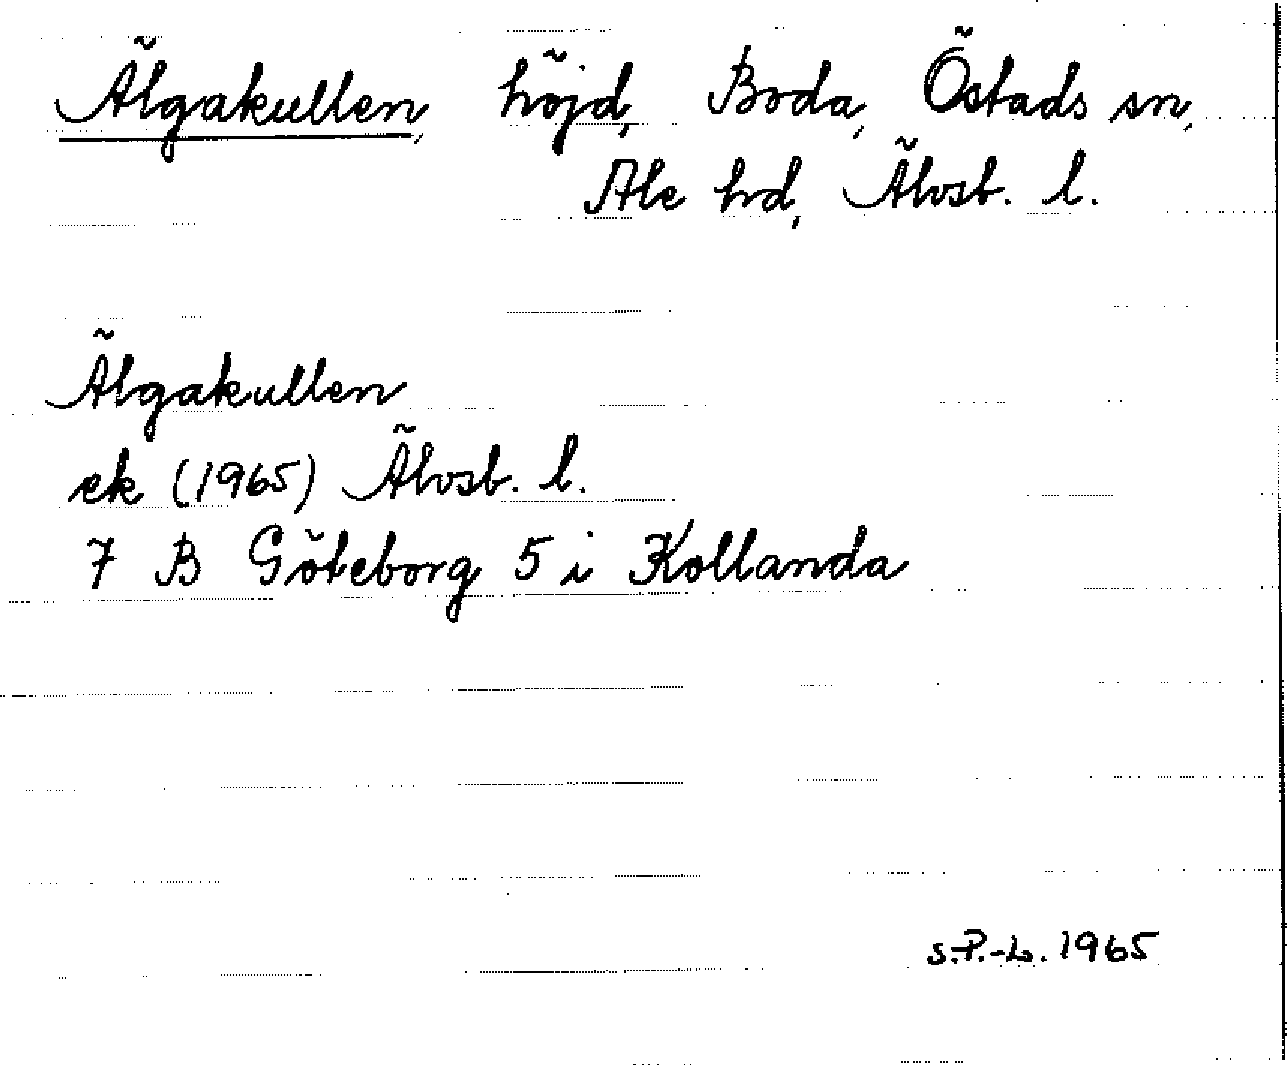 Älgakullen, höjd, Boda, Östads sn,
Ale hd, Älvsb. l.
Älgakullen
ek (1965) Älvsb. l.
7 B Göteborg 5 i Kollanda
S.P.-L. 1965